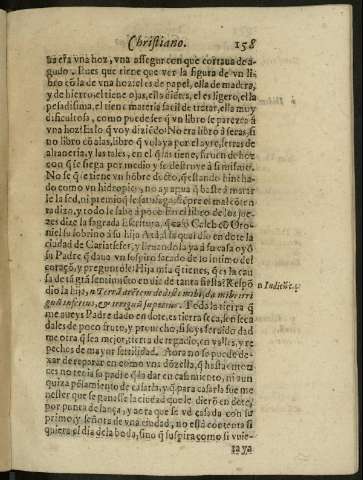 Christiano. 158
ua era vna hoz, vna assegur con que cortaua de a-
gudo. Pues que tiene que ver la figura de vn li-
bro cõ la de vna hoz: el es de papel, ella de madera,
y de hierro, el tiene ojas, ella el es ligero, ella
pesadissima, el tiene materia facil de tratar, ella muy
dificultosa, como puede ser q̃ vn libro se parezca à
vna hoz? Es lo q̃ voy diziẽdo: No era libro à secas, si
no libro cõ alas, libro q̃ volaua por el ayre, letras de
altaneria, y las tales, en el q̃ las tiene, siruen de hoz
con q̃ se siega por medio y se destruye à si mismo.
No se q̃ se tiene vn hõbre docto, q̃ estando hincha-
do como vn hidropico, no ay agua q̃ baste à matar
le la sed, ni premio q̃ le satisfaga: siempre el mal cõten
tadizo, y todo le sabe à poco. En el libro de los jue-
zes dize la sagrada escritura, q̃ casò Caleb cõ Oto-
niel su sobrino à su hija Axa, à la qual dio en dote la
ciudad de Cariatsefer, y lleuandola ya à su casa oyò
su Padre q̃ daua vn sospiro sacado de lo intimo del
coraçõ, y preguntòle: Hija mia q̃ tienes, q̃ es la cau
sa de tã grã sentimiẽto en dia de tanta fiesta? Respõ
dio la hija, n Terrã arẽtem dedisti mihi, da mihi irri
guũ inferius, & irriguũ superius. Toda la tierra q̃
me aueys Padre dado en dote, es tierra seca, son seca
dales de poco fruto, y prouecho, si soys seruido dad
me otra q̃ sea mejor, tierra de regadio, en valles, y re
pechos de mayor fertilidad. Aora no se puede de-
xar de reparar en como vna dõzella, q̃ hasta enton
ces no tenia su padre q̃ la dar en casamiento, ni aun
quiza pẽsamiento de casarla, y q̃ para casarla fue me
nester que se ganasse la ciudad que le dierõ en dote,
por punta de lança, y aora que se vè casada con su
primo, y señora de vna ciudad, no està contenta si
quiera el dia de la boda, sino q̃ suspira como si vuie-
ra ya
n Indic. c. 1